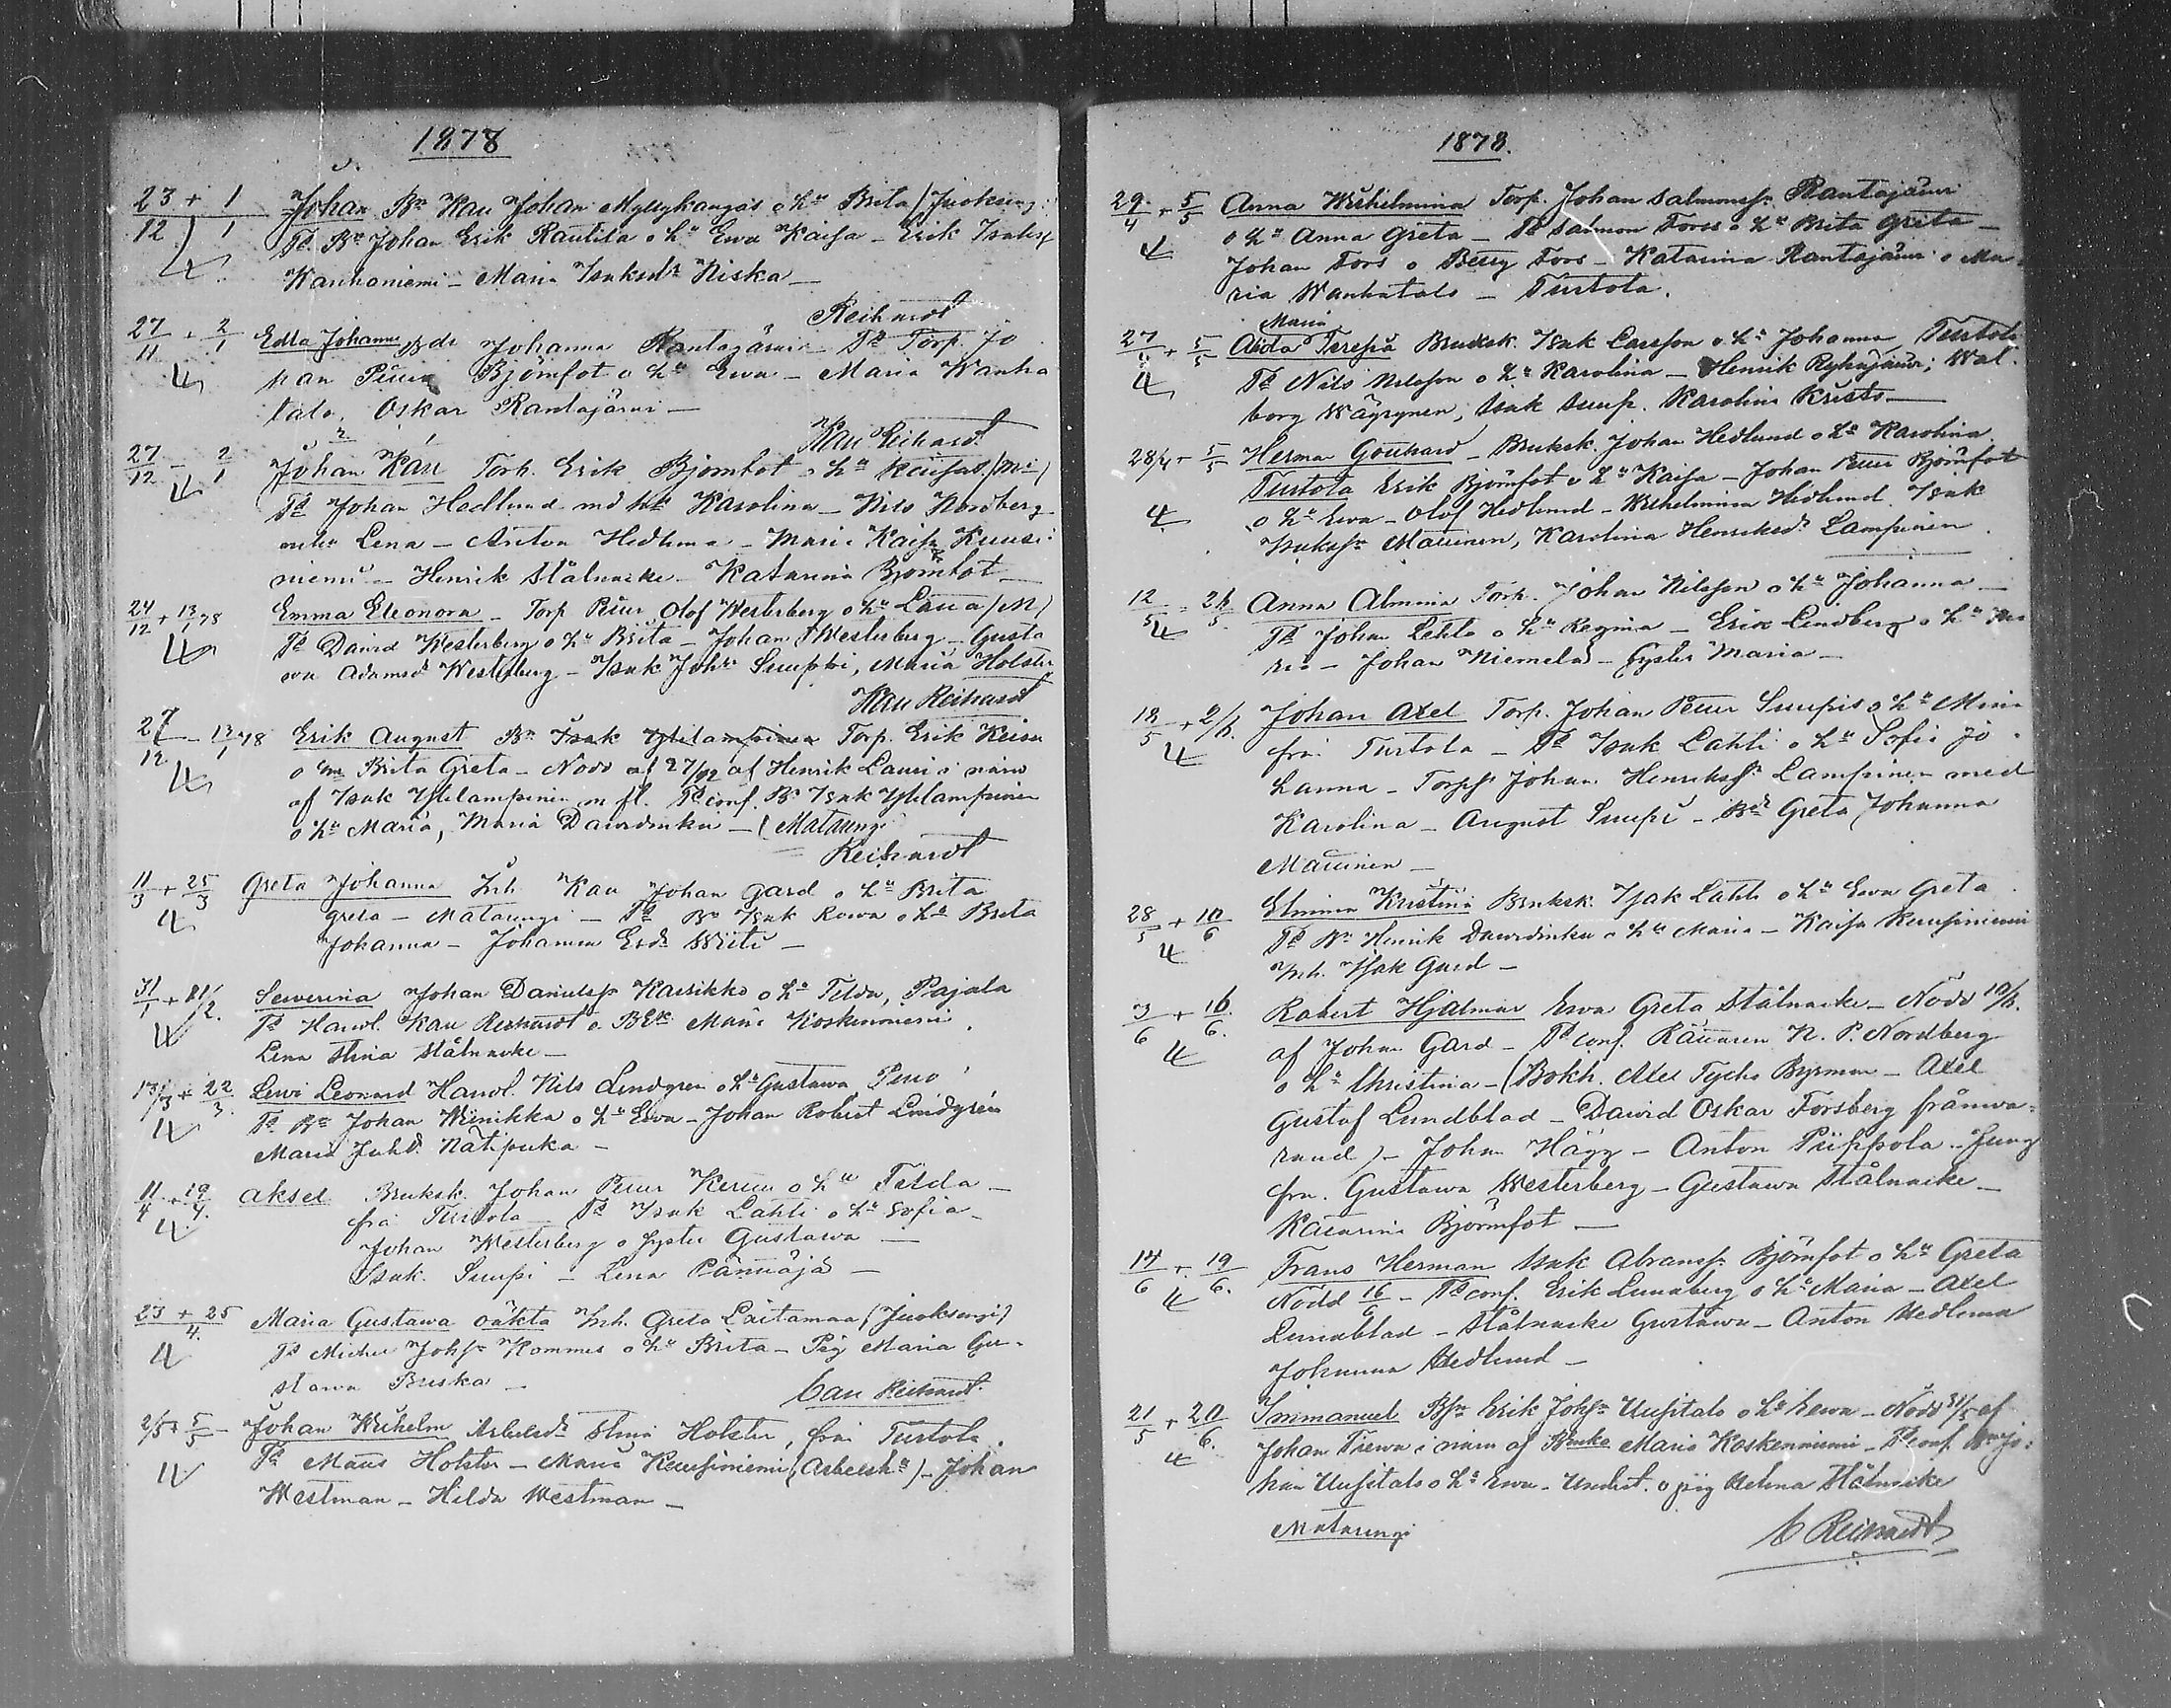 1878
23/12 + 1/1 Johan Bn Karl Johan Myllykangas o hu Brita (Juoksengi
Td Bn Johan Erik Rautila o hu Ewa Kaisa - Erik Isaksf
Wanhaniemi - Maria Isaksdr Niska -
Reihardt
27/11 + 2/1 Edla Johanna Bdr Johanna Rantajärvi - Td Torp. Jo
han Petter Björnfot o hu Ewa - Maria Wanha
talo. Oskar Rantajärvi -
Karl Reihardt
27/12 - 2/1 Johan Karl Torp. Erik Björnfot o hu Kaisa (M)
Td Johan Hedlund md hu Karolina - Nils Nordberg
Lena - Anton Hedlund - Maria Kaisa Kuusi
niemi - Henrik Stålnacke - Katarina Björnfot -
24/12 + 13/1 78 Emma Eleonora - Torp Petter Olof Westerberg o hu Laura (M)
Td David Westerberg o hu Brita - Johan Westerberg - Gusta
va Adamsd Westerberg - Isak Johs Suuppi, Maria Holster
Karl Reihardt
27/12 - 13/1 78 Erik August Bn Isak Ylilampinen Torp. Erik Keisu
o Brita Greta - Nödd af 27/12 af Henrik Lauri i närv
af Isak Ylilampinen m fl. Td conf. Bn Isak Ylilampinen
o hu Maria, Maria Davidinkie - (Matarengi
Reihardt
11/3 + 25/3 Greta Johanna Inh. Karl Johan Gard o hu Brita
Greta - Matarengi - Td Bn Isak Rowa o hu Brita
Johanna - Johanna Ersdr Wiiti -
31/1 + 21/2. Severina Johan Danielsf Karsikko o hu Tilda, Pajala
Td Handl. Karl Reihardt o Maria Koskenniemi.
Lena Stina Stålnacke -
13/3 + 22/3. Levi Leonard Handl. Nils Lindgren o hu Gustava Pello
Td Bn Johan Winikka o hu Ewa - Johan Robert Lindgren
Maria Juhd. Nätipuka -
11/4 + 19/4. Aksel Bruksk. Johan Petter Kerttu o hu Tilda -
frå Turtola - Td Isak Lahti o hu Sofia -
Johan Westerberg o Syster Gustava -
Isak Suuppi - Lena
23 + 25/4. Maria Gustawa oäkta Inh. Greta Laitamaa (Juoksengi)
Td Mickel Johsn Kommes o hu Brita - Pig Maria Gu-
stawa Briska -
Carl Reihardt.
2/5 + 5/5 - Johan Wilhelm Arbetsd Stina Holster, frå Turtola.
Td Matts Holster - Maria Kuusiniemi (Arbetsk) - Johan
Westman - Hilda Westman -
1878.
29/4 + 5/5 Anna Wilhelmina Torp. Johan Salmonsf. Rantajärvi
o hu Anna Greta - Td Salmon Fors o hu Brita Greta -
Johan Fors o Fors - Katarina Rantajärvi o Ma
ria Wanhatalo - Turtola.
Maria
27/4 + 5/5 Alida Teresia Bruksk. Isak Larsson o hu Johanna Turtola
Td Nils Nilsson o hu Karolina - Henrik Wal
borg Wäyrynen, Isak Suup. Karolina Kristo -
28/4 + 5/5 Herman Gotthard - Bruksk. Johan Hedlund o hu Karolina
Turtola Erik Björnfot o hu Kaisa - Johan Petter Björnfot
o hu Ewa - Olof Hedlund - Wilhelmina Hedlund. Isak
Isaksf Mattinen, Karolina Henriksd Lampinen
12/5 = 26/5 Anna Almina Torp. Johan Nilsson o hu Johanna -
Td Johan Lehto o hu Regina - Erik Lindberg o hu Ma
ria - Johan Niemelä - Syster Maria -
18/5 + 2/6. Johan Axel Torp. Johan Petter Suupis o hu Mina
frå Turtola - Td Isak Lahti o hu Sofia Jo
hanna - Torpf Johan Henriksf Lampinen med
Karolina - August Suupi - Bdr Greta Johanna
Mattinen -
28/5 + 10/6 Elmina Kristina Bruksk. Isak Lahti o hu Ewa Greta
Td Bn Henrik Davidinkie o hu Maria - Kaisa Kuusiniemi
Inh. Isak Gard -
3/6 + 16/6. Robert Hjalmar Ewa Greta Stålnacke - Nödd 10/6.
af Johan Gard - Td conf. Rättaren N. P. Nordberg
o hu Christina - (Bokh. Axel Tycho Byrman - Axel
Gustaf Lundblad - David Oskar Forsberg frånwa-
rand) - Johan Hägg - Anton Piippola - Jung
fru. Gustawa Westerberg - Gustawa Stålnacke -
Katarina Björnfot -
14/6 + 19/6. Frans Herman Isak Abramsf. Björnfot o hu Greta
Nödd 16/6 - Td conf. Erik Lundberg o hu Maria - Axel
Lundblad - Stålnacke Gustawa - Anton Hedlund
Johanna Hedlund -
21/5 + 20/6. Immanuel Bsn Erik Johsn Uusitalo o hu Ewa - Nödd 21/5 af
Johan Trewa i närv af Maria Koskenniemi - Td conf. Bn Jo:
han Uusitalo o hu Ewa - o pig Helena Stålnacke
Matarengi
C Reihardt